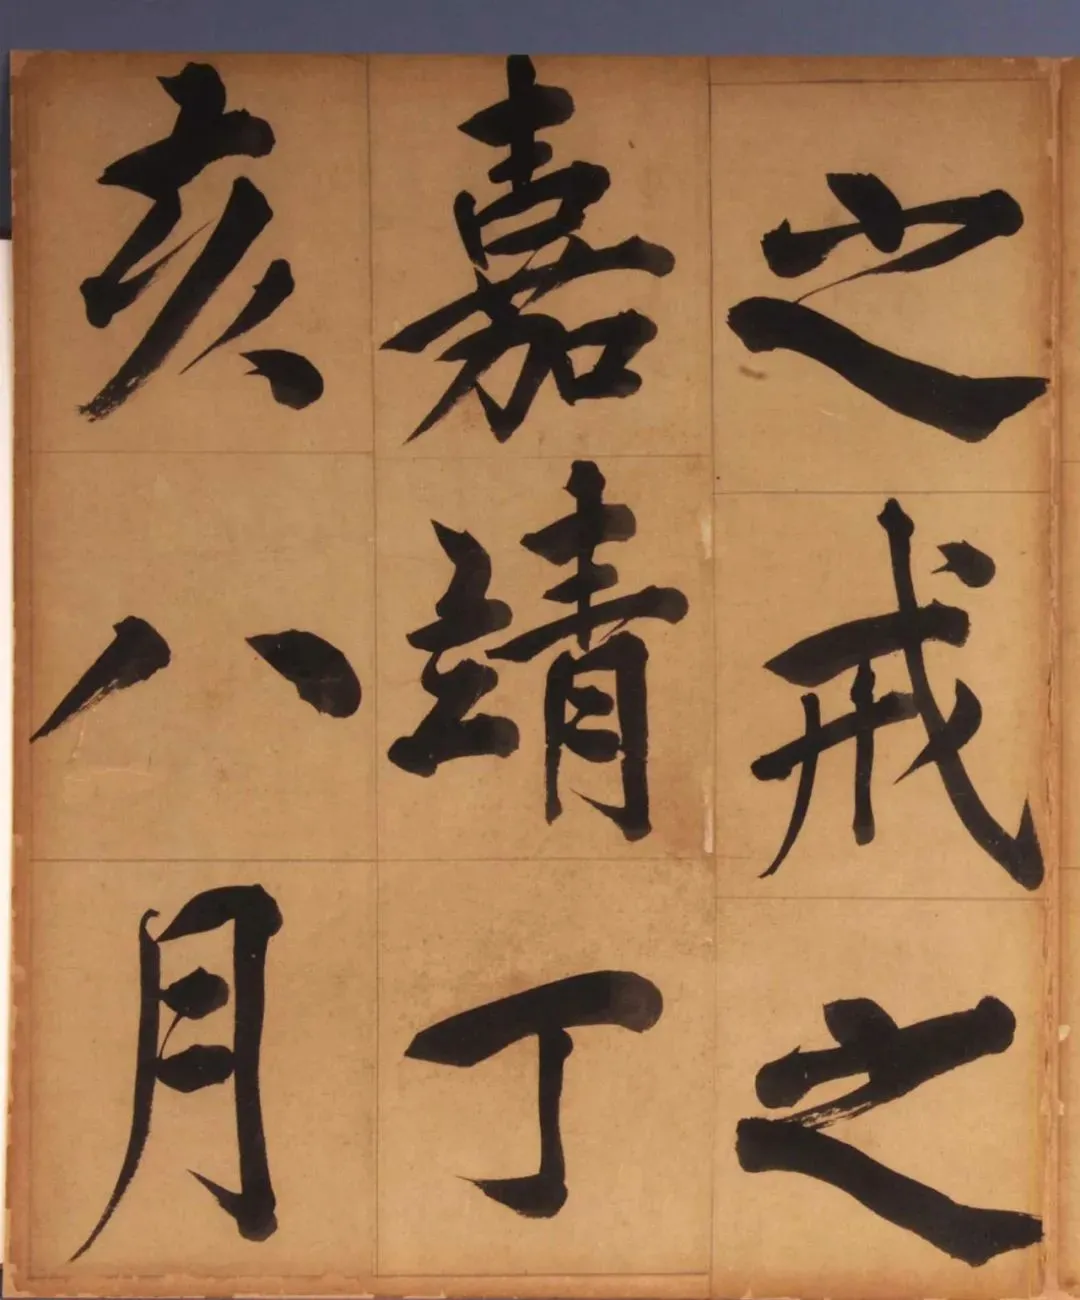 之戒之
嘉靖丁
亥八月